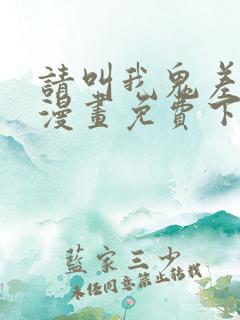 請叫我鬼差
漫畫免費下
藍家三少
未經同意禁止轉載